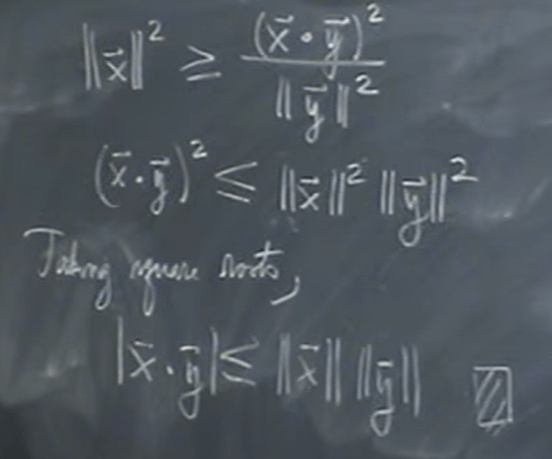 ‖x⃗‖² ≥ (x⃗ · y⃗)² / ‖y⃗‖²
(x⃗ · y⃗)² ≤ ‖x⃗‖² ‖y⃗‖²
Taking square roots,
|x⃗ · y⃗| ≤ ‖x⃗‖ ‖y⃗‖ ▨